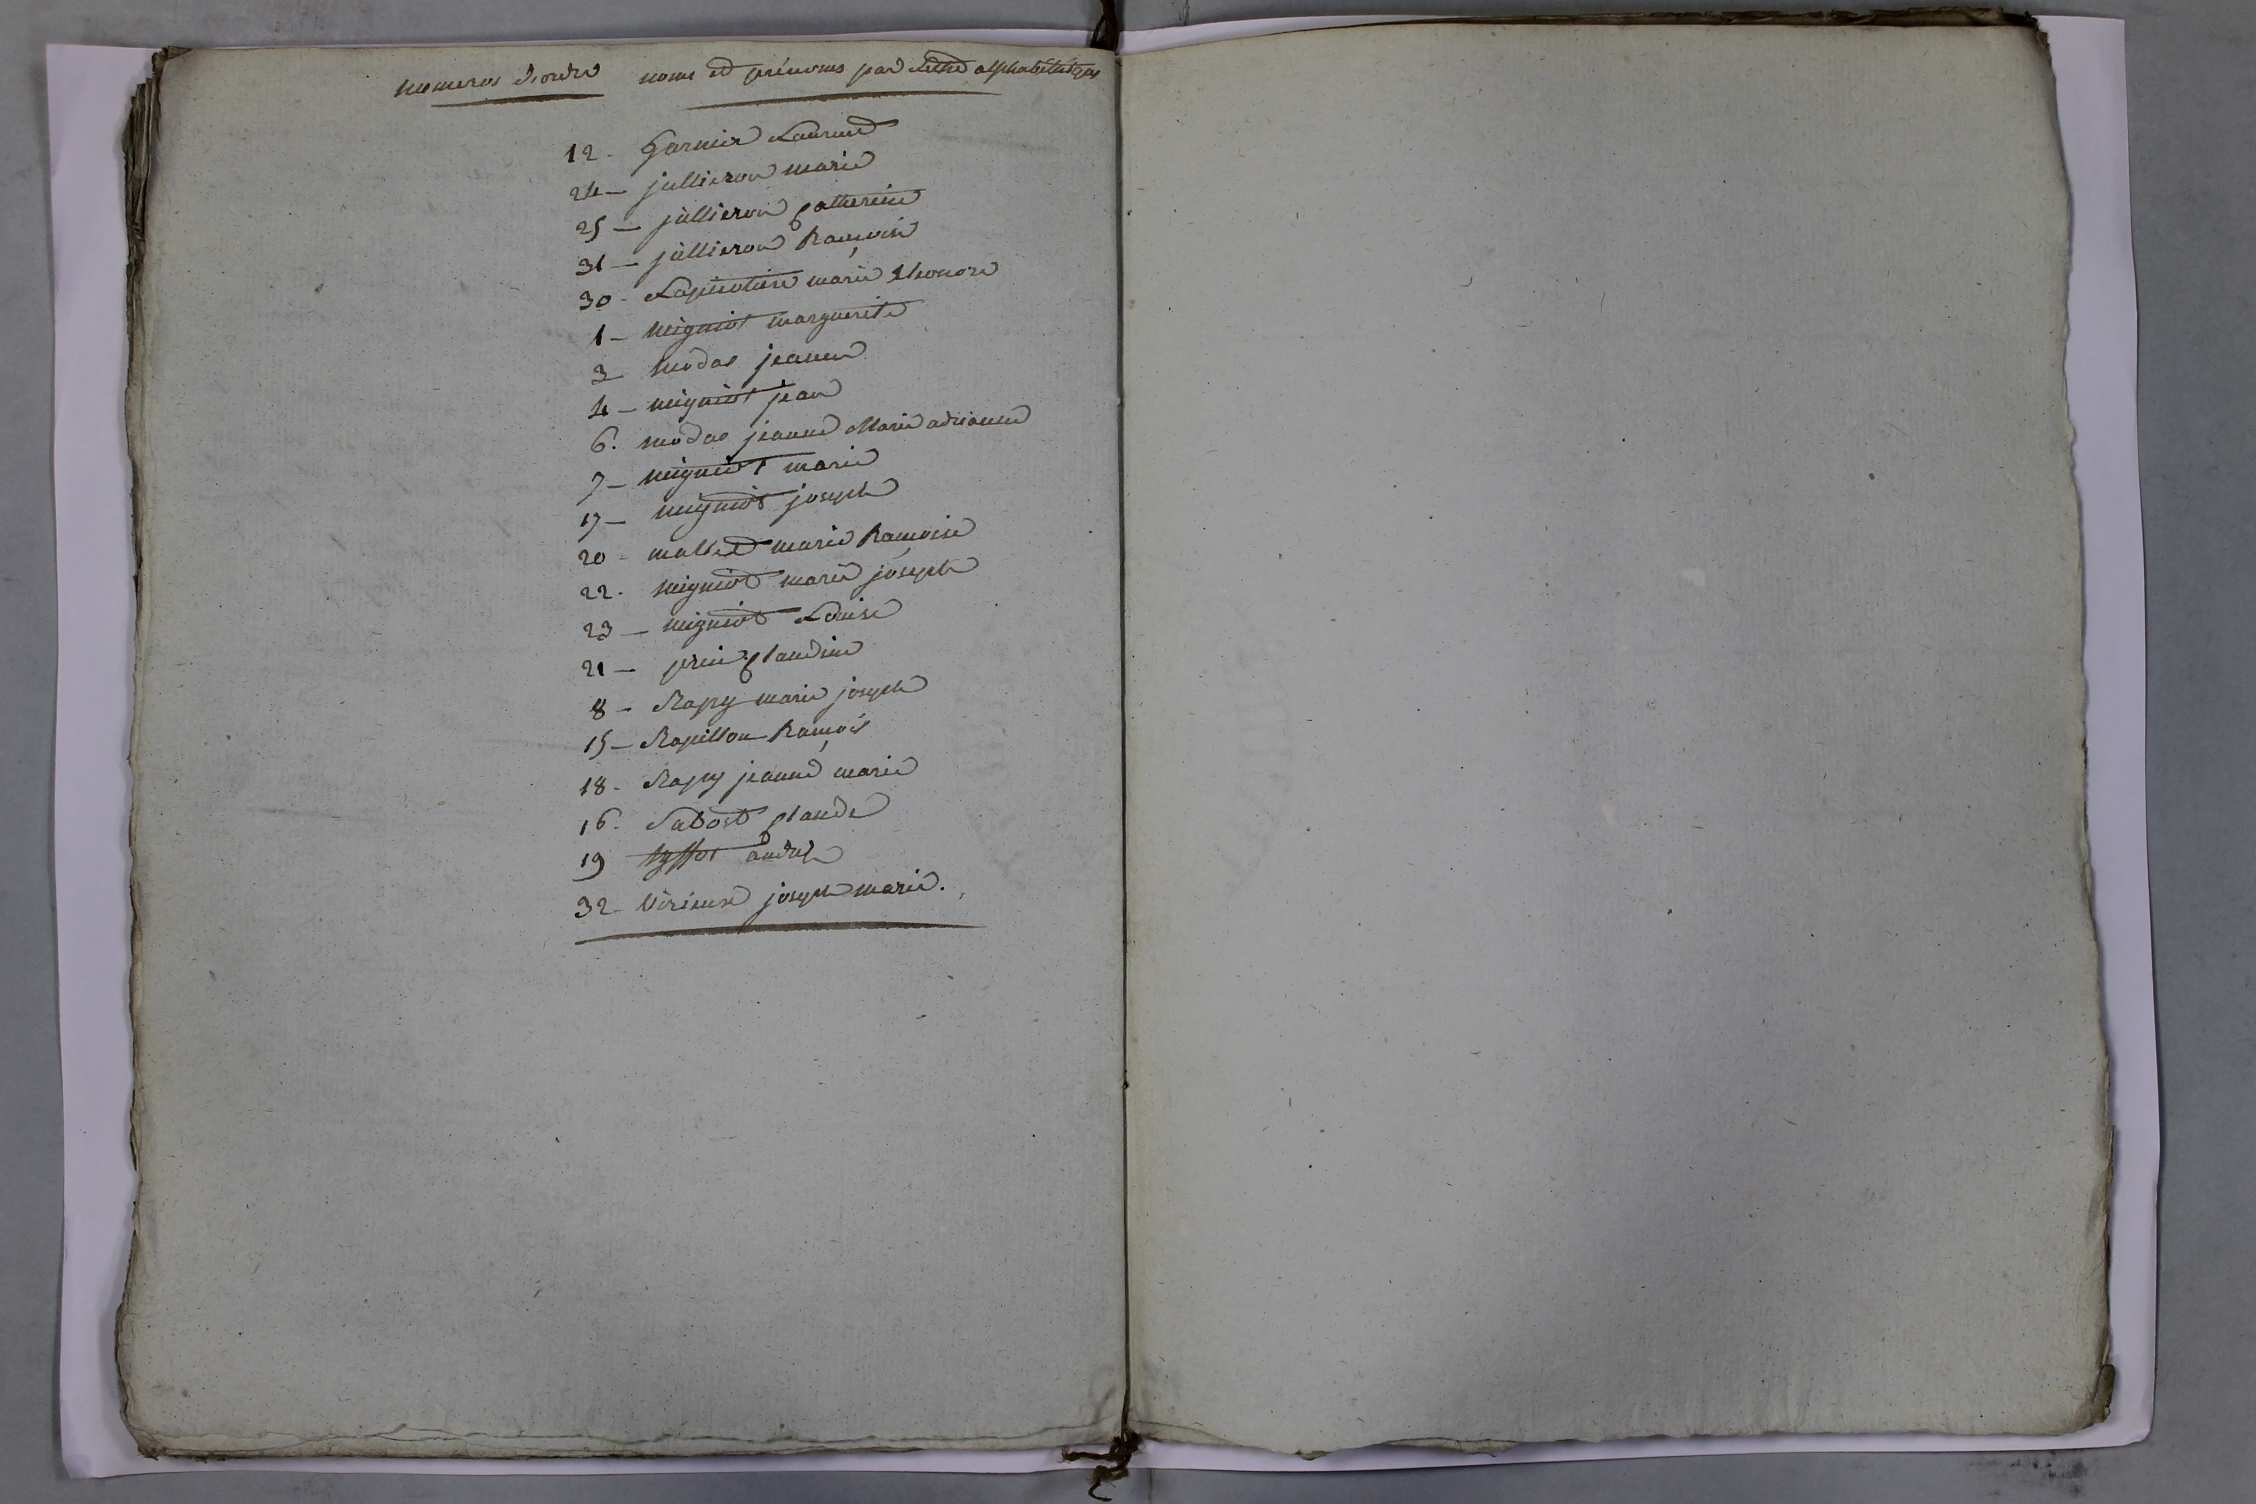 numeros d'ordre noms et prénoms par Lettre alphabétique
12 - Garnier Laurent
24 - jullieron marie
25 - jullieron Catherine
31 - jullieron francoise
30 - marie Eleonore
1 - migniot marguerite
3 modas jeanne
4 - migniot jean
6. modas jeanne Marie adrianne
7 - migniot marie
17 - migniot joseph
20 - mallet marie francoise
22. migniot marie joseph
23 - migniot Louise
21 - Claudine
8 - Rapy marie joseph
15 - Rapillon françois
18 - Rapy jeanne marie
16. Sabost Claude
19 andré
32 Virieux joseph marie.